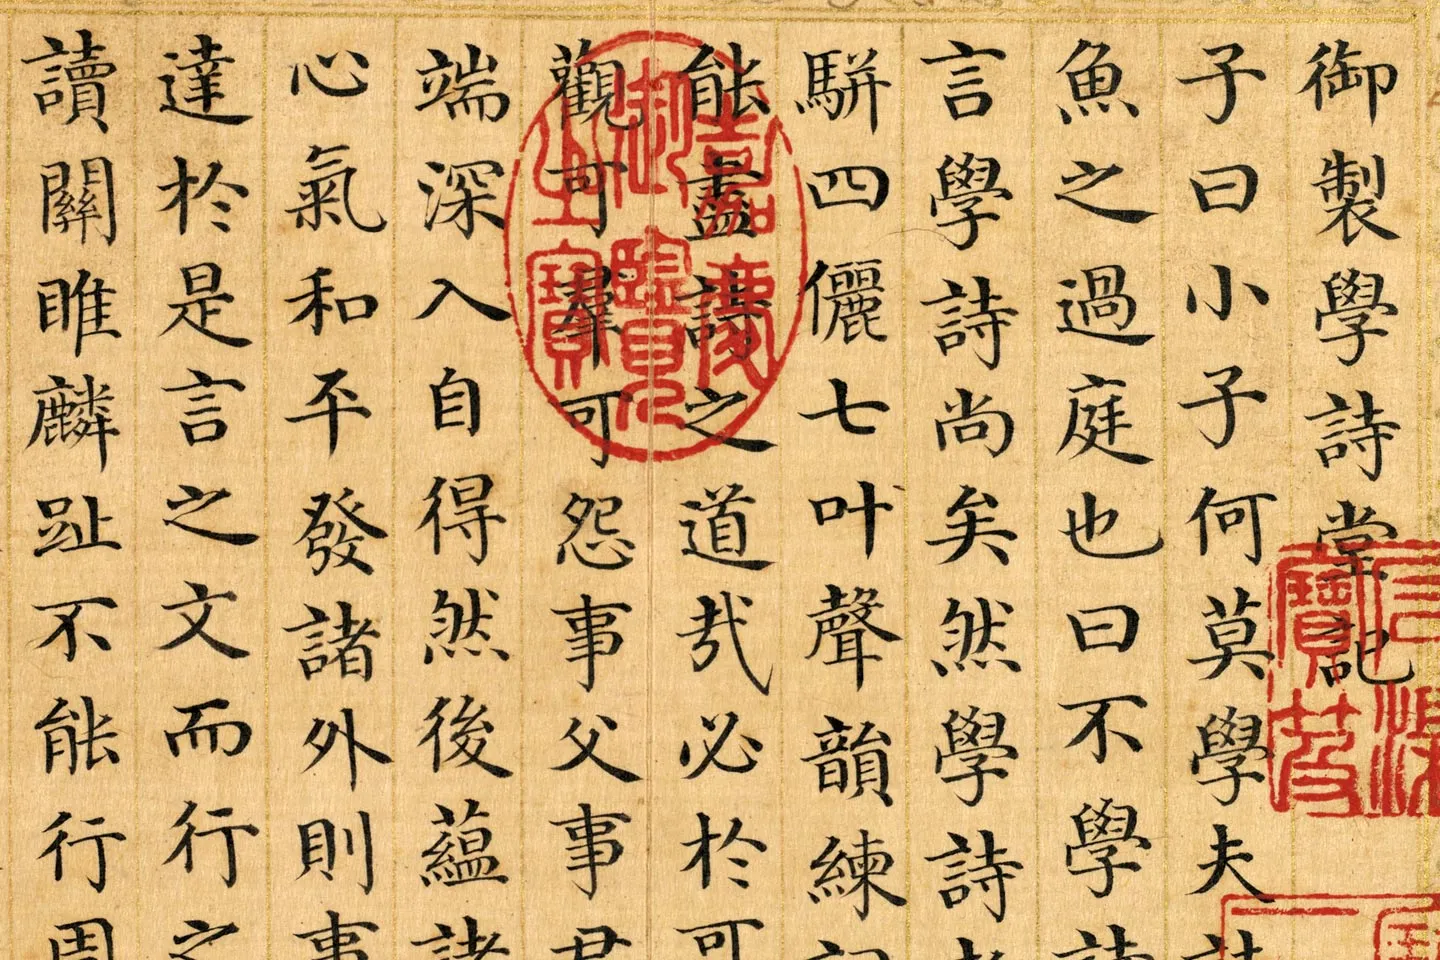 御製學詩堂記
子曰小子何莫學夫詩
魚之過庭也曰不學詩
言學詩尚矣然學詩者
駢四儷七叶聲韻練詞
能盡詩之道哉必於可
觀可羣可怨事父事君
端深入自得然後蘊諸
心氣和平發諸外則事
達於是言之文而行之
讀關雎麟趾不能行周
嘉慶御覽之寶
三希
寶笈